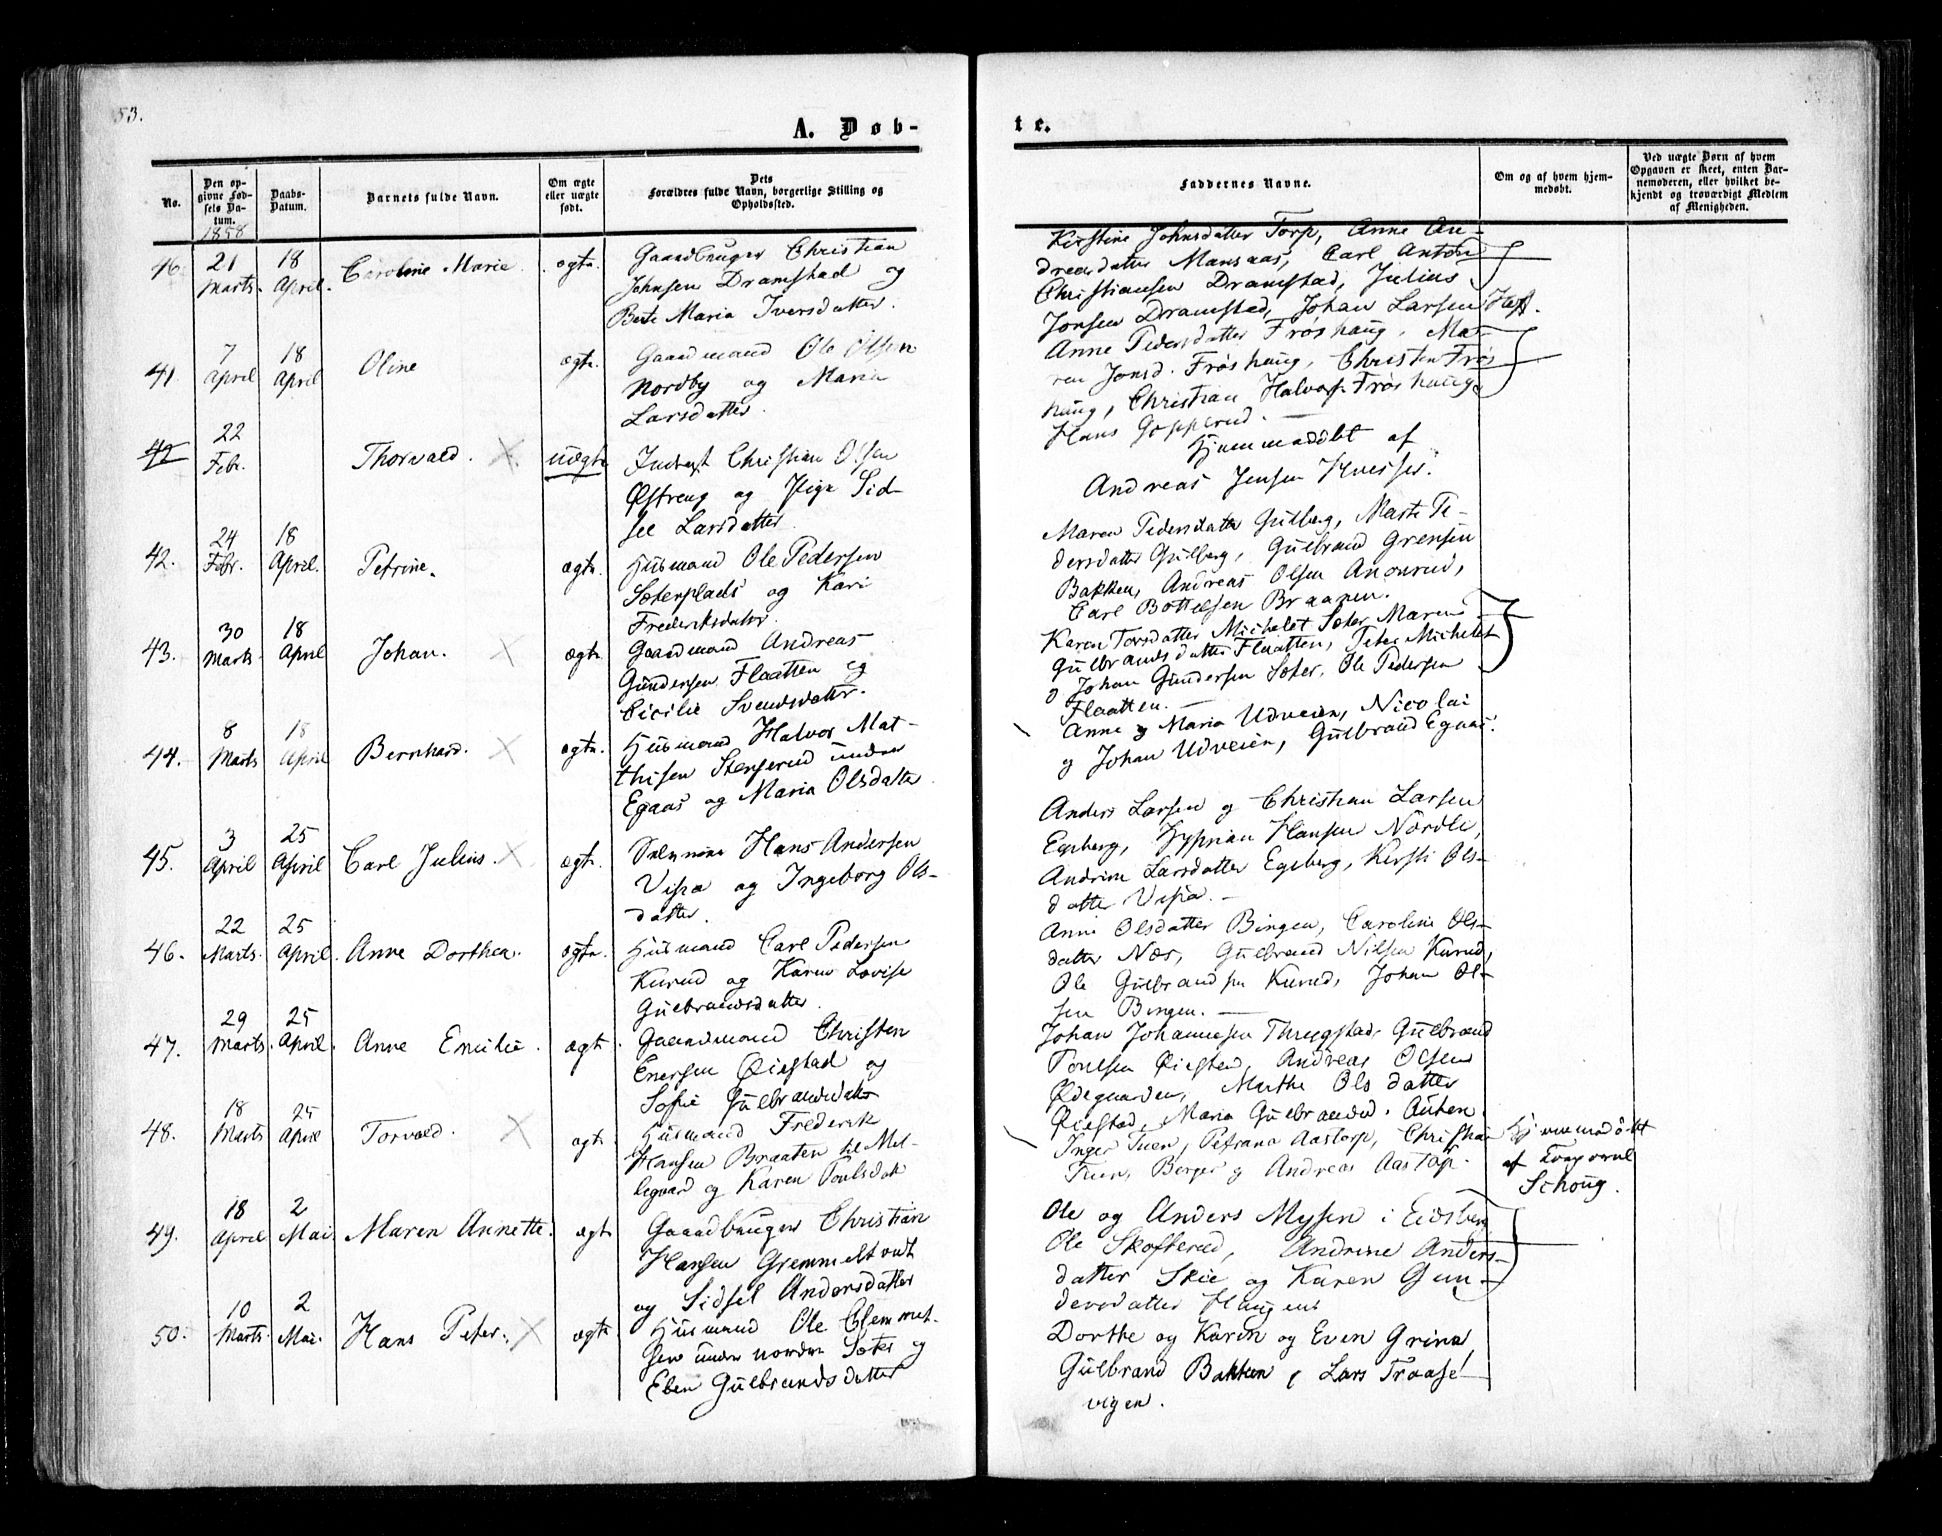 53.
A. Døb-
No.
Den op-
givne Fød-
sels Da-
tum.
1858
Daabs-
Datum.
Barnets fulde Navn.
Om ægte
eller uægte
født.
Dets
Forældres fulde Navn, borgerlige Stilling og
Opholdssted.
40.
21
Marts.
18
April.
Caroline Marie
ægte.
Gaardbruger Christian
Johnsen Dramstad og
Berte Maria Iversdatter.
41
7
April
18
April
Oline
ægte.
Gaardmand Ole Olsen
Nordby og Maria
Larsdatter.
42
22
Febr.
Thorvald.
uægte
Inderst Christian Olsen
Østreng og Pige Sid-
see Larsdatter
42.
24
Febr.
18
April.
Petrine.
ægte.
Husmand Ole Pedersen
Sæterplads og Kari
Frederiksdatter.
43.
30
Marts.
18
April
Johan.
ægte.
Gaardmand Andreas
Gundersen Flaatten og
Cicilie Svendsdatter.
44.
8
Marts
18
April
Bernhard.
ægte.
Husmand Halvor Mat-
thisen Stenserud under
Egaas og Maria Olsdatter
45.
3
April
25
April
Carl Julius.
ægte.
Hans Andersen
og Ingeborg Ols-
datter.
46.
22
Marts.
25
April.
Anne Dorthea.
ægte.
Husmand Carl Pedersen
Kurud og Karen Lovise
Gulbrandsdatter.
47.
29
Marts.
25
April.
Anne Emilie.
ægte.
Gaardmand Christen
Enersen Øiestad og
Sofie Gulbrandsdatter
48.
18
Marts
25
April
Torvald.
ægte
Husmand Frederik
Hansen Braaten til Mel-
legaard og Karen Poulsdatter
49.
18
April
2
Mai
Maren Annette.
ægte
Gaardbruger Christian
Hansen Gremmeltvedt
og Sidsel Andersdatter
50.
10
Marts.
2
Mai.
Hans Peter.
ægte
Husmand Ole Clemmet-
sen under nordre Sæter og
Eben Gulbrandsdatter
te.
Faddernes Navne.
Om og af hvem hjem-
medøbt.
Ved uægte Børn af hvem
Opgaven er skeet, enten Bar-
nemoderen, eller hvilket be-
kjendt og troværdigt Medlem
af Menigheden.
Kirstine Johnsdatter Torp, Anne An-
dreasdatter Mansaas, Carl Anton
Christiansen Dramstad, Julius
Jonsen Dramstad, Johan Larsen
Anne Pedersdatter Frøshaug, Ma-
ren Jonsd. Frøshaug, Christen Frøs
haug, Christian Halvors. Frøshaug
Hans Gopperud.
Hjemmedøbt af
Andreas Jensen
Maren Pedersdatter Gulberg, Marte Pe-
dersdatter Gulberg, Gulbrand Grensen
Bakken, Andreas Olsen Anonrud,
Carl Bottelsen Braanen.
Karen Torsdatter Michelet Sæter Maren
Gulbrandsdatter Flaatten, Peter Michelet
og Johan Gundersen Sæter, Ole Pedersen
Flaatten.
Anne og Maria Udveien, Nicolai
og Johan Udveien, Gulbrand Egaas.
Anders Larsen og Christian Larsen
Egeberg, Zyprian Hansen Nordli,
Andrine Larsdatter Egeberg, Kersti Ols-
datter
Anne Olsdatter Bingen, Caroline Ols-
datter Næs, Gulbrand Nilsen Kurud,
Ole Gulbrandsen Kurud, Johan Ol-
sen Bingen.
Johan Johannesen Thrygstad, Gulbrand
Poulsen Øiestad, Andreas Olsen
Ødegaarden, Marthe Olsdatter
Øiestad, Maria Gulbrandsd. Auten
Inger Tuen, Petrana Aastorp, Christian
Tuen, Berger og Andreas Aastorp.
Hjemmedøbt
af
Schoug.
Ole og Anders Mysen i Eidsberg
Ole Skofterud, Andrine Anders-
datter Skie og Karen Gun-
dersdatter Haugen
Dorthe og Karen og Even Grina,
Gulbrand Bakken, Lars Traase-
vigen.